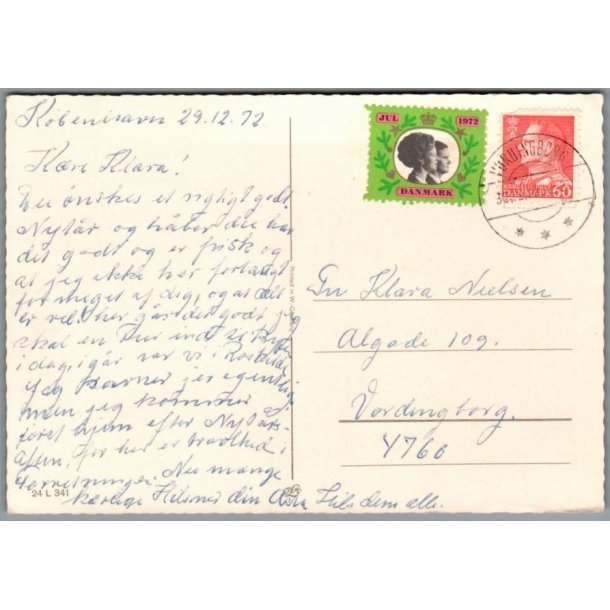 København 29.12.72
Kære Klara!
Du ønskes et rigtigt godt
Nytår og håber du har
det godt og er frisk og
at jeg ikke har forlangt
for meget af dig, og at alt
er vel. her går det godt jeg
skal en Tur ind til Byen
i dag, igår var vi i Roskilde
Jeg savner jer egentlig
men jeg kommer
først hjem efter Nytårs-
aften, for her er travlhed i
Forretningen. Nu mange
kærlige Hilsner din Hils dem alle.
24 L 341
Printed in W.
JUL 1972
DANMARK
DANMARK 60
VORDINGBORG
Fru Klara Nielsen
Algade 109.
Vordingborg.
4760